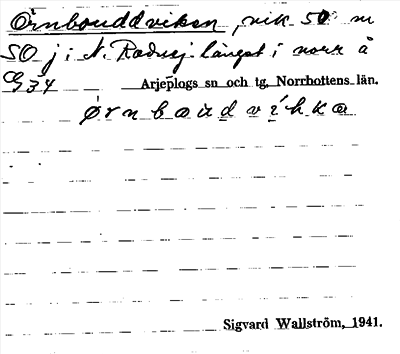 Örnbouddviken, vik 50 m
SO j i N. Radnej. längst i norr å
G34 Arjeplogs sn och tg, Norrbottens län.
ørnbaudvika
Sigvard Wallström, 1941.